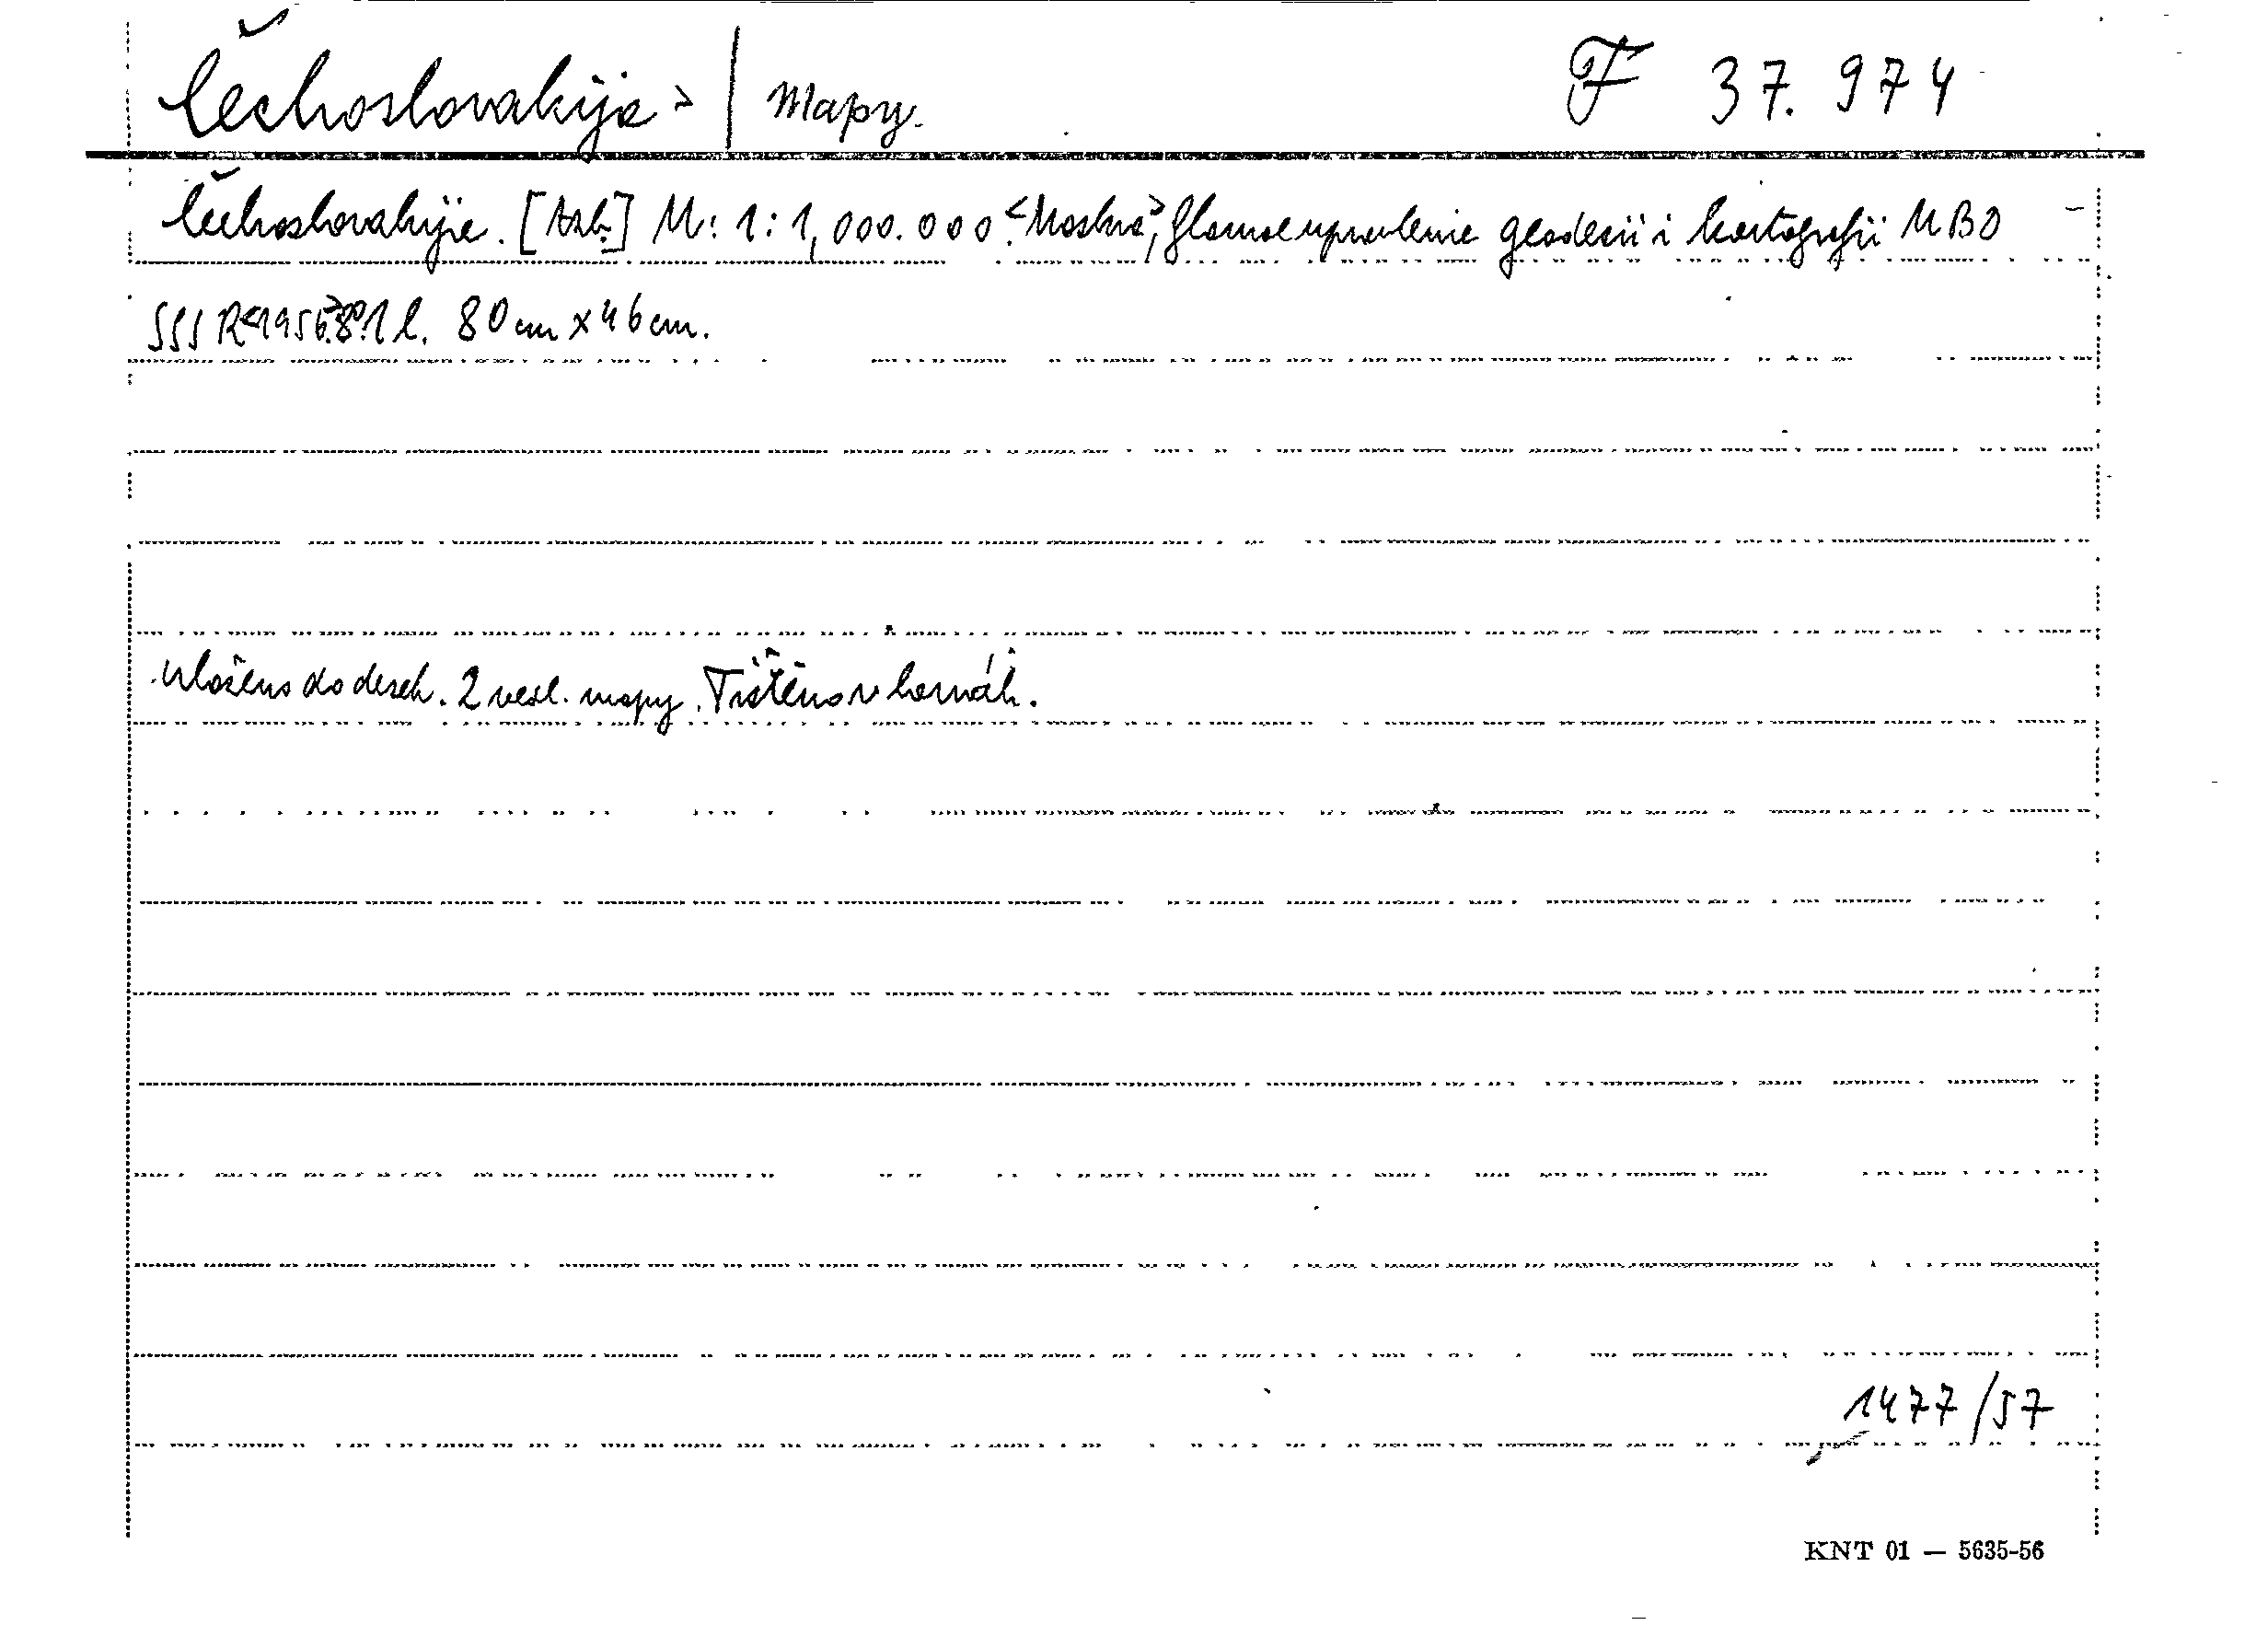 Čechoslovakija > / Mapy. F 37.974
Čechoslovakija. M: 1:1,000.000. <Moskva>, Glavnoe upravlenie geodezii i kartografii MVD
SSSR <1956>. 8°. 1 l. 80 cm x 46 cm.
Vloženo do desek. 2 vedl. mapy. Tištěno v barvách.
1477/57
KNT 01 — 5635-56